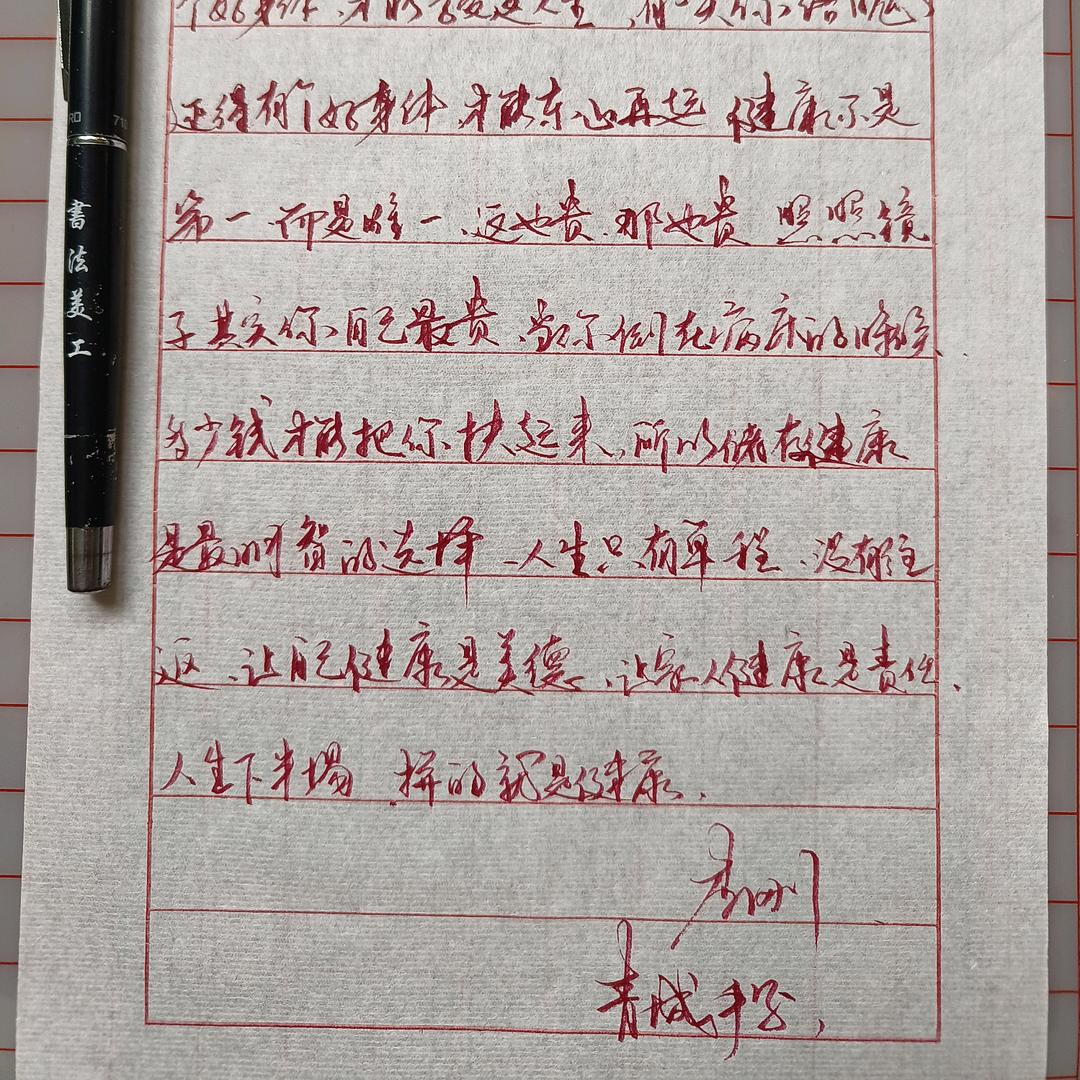 个好身体,才能享受这人生,有一天你
还得有个好身体,才能东山再起 健康不是
第一 而是唯一,这也贵,那也贵 照照镜
子其实你自己最贵,当你倒在病床的时候,
多少钱才能把你扶起来,所以储存健康
是最明智的选择,人生只有单程,没有往
返,让自己健康是美德,让家人健康是责任,
人生下半场 拼的就是健康。
青城
書法美工